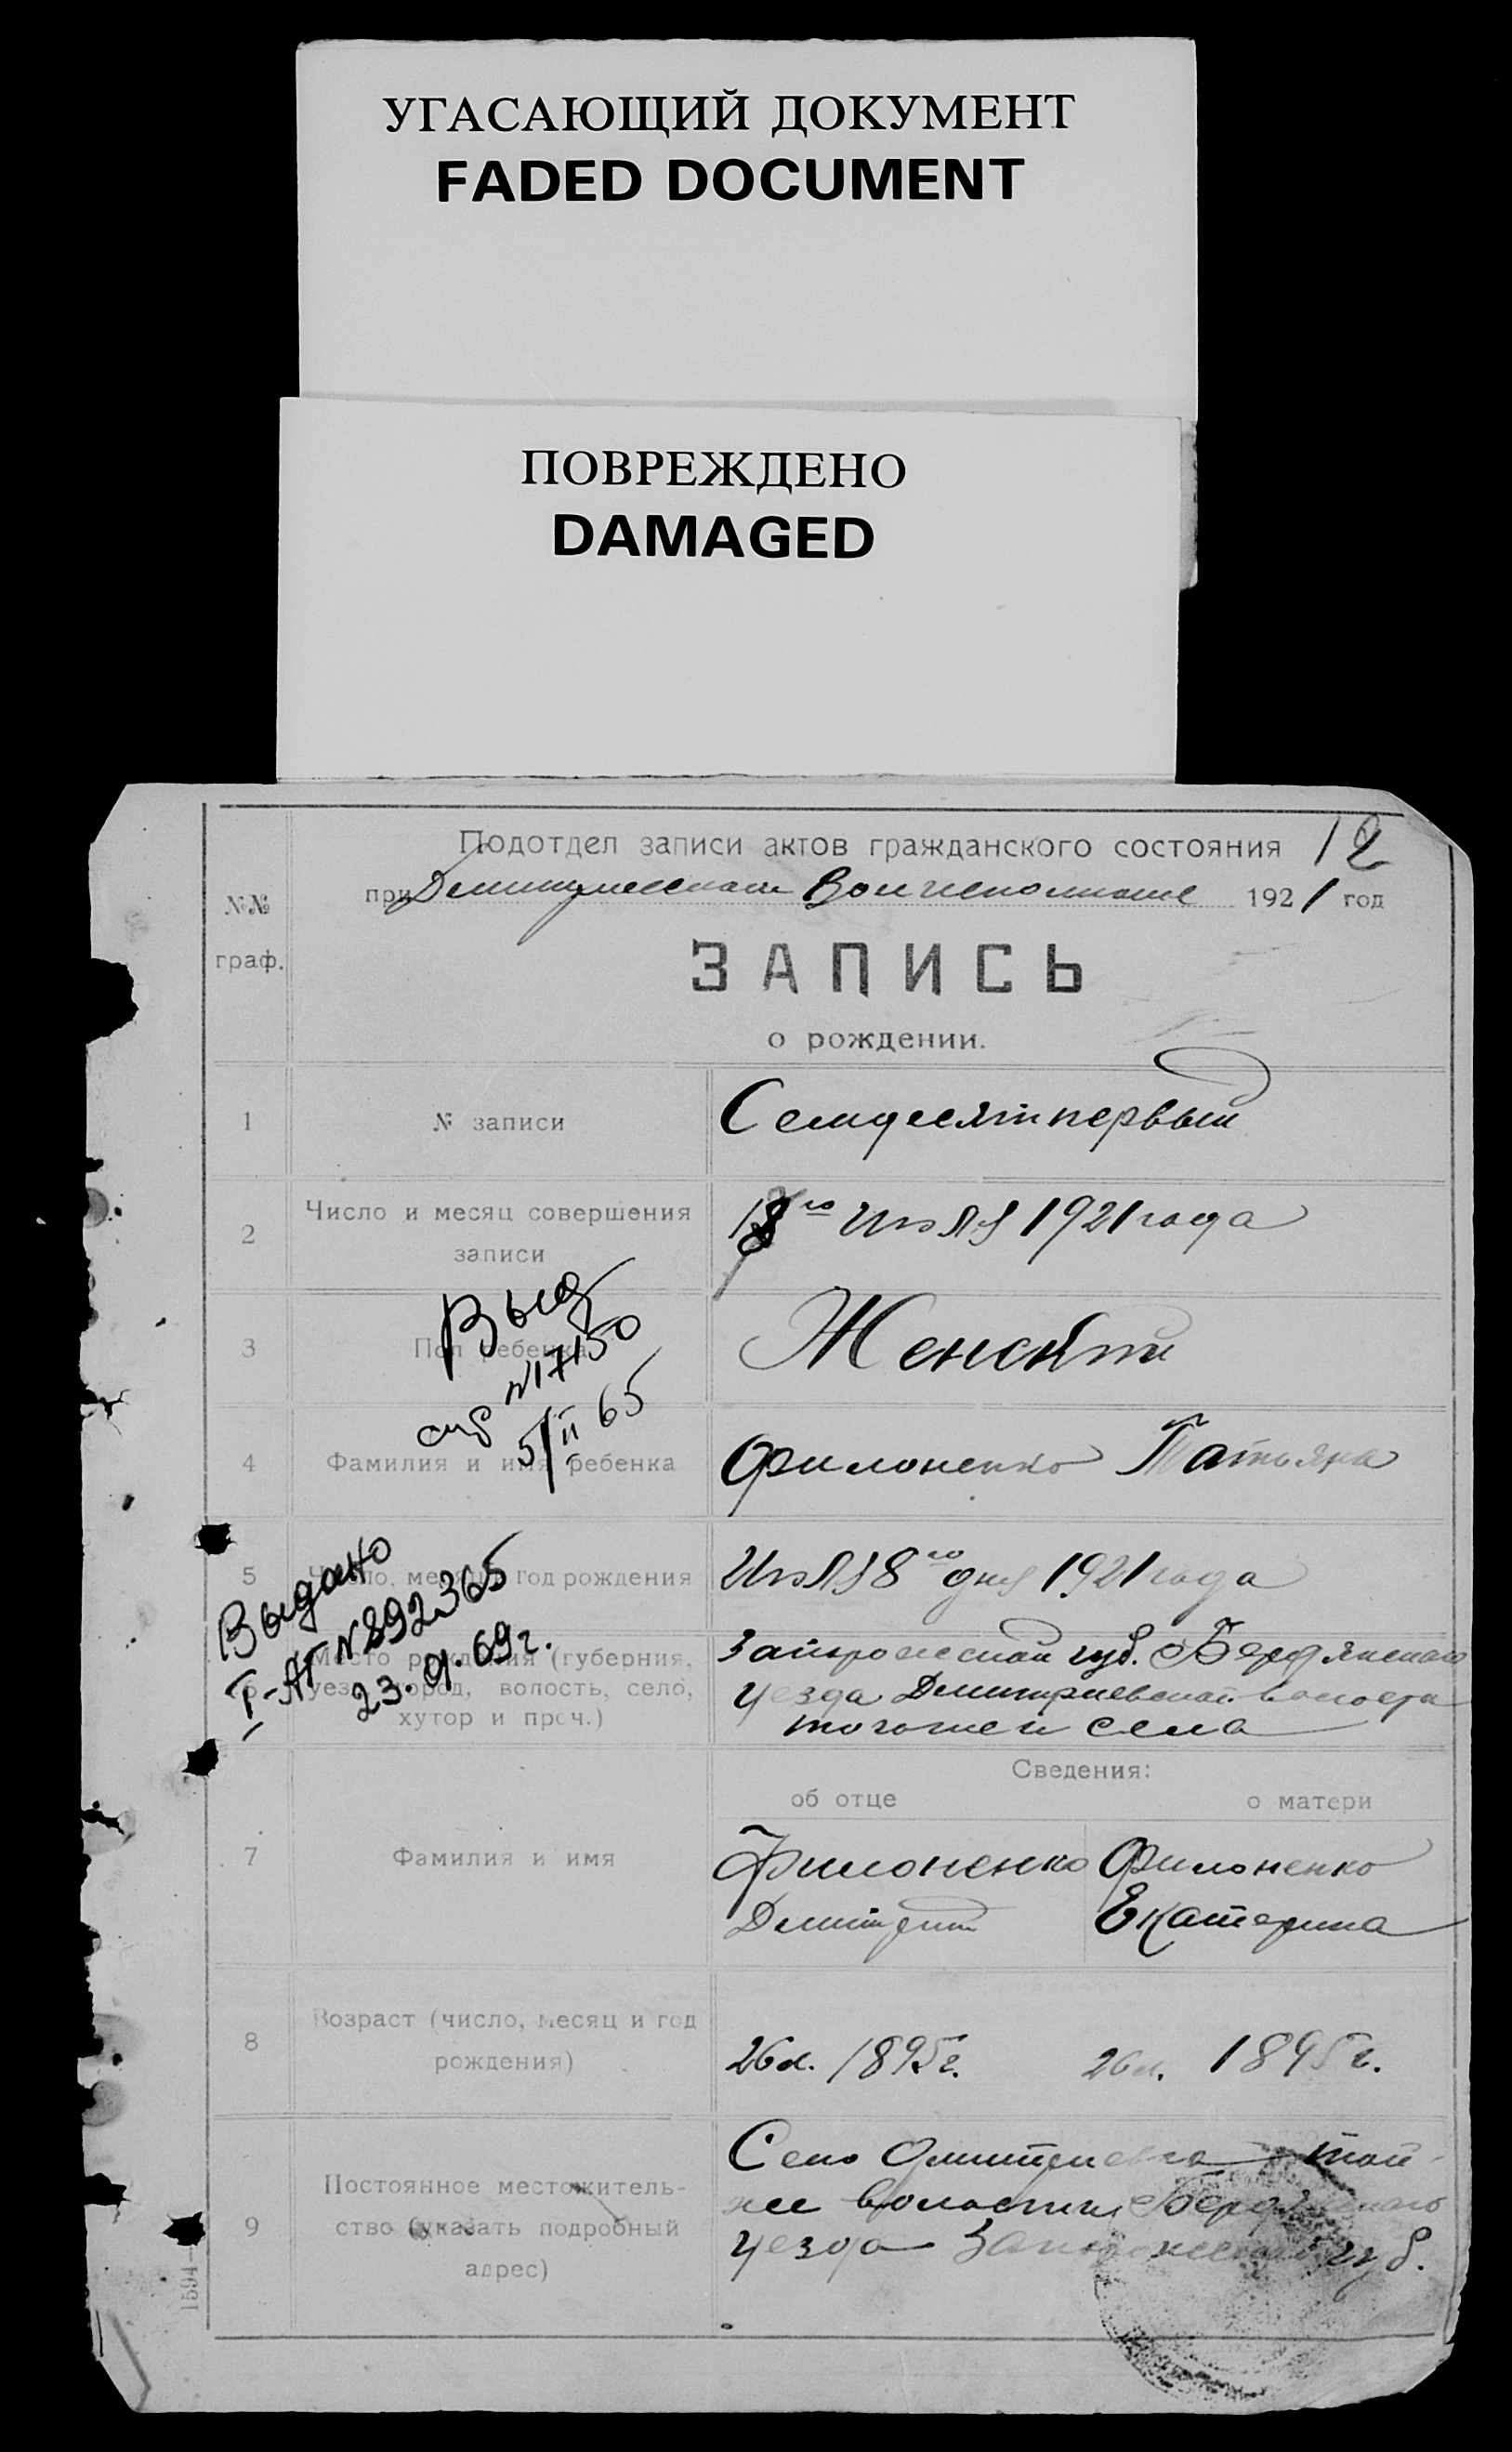 УГАСАЮЩИЙ ДОКУМЕНТ
FADED DOCUMENT
ПОВРЕЖДЕНО
DAMAGED
Подотдел записи актов гражданского состояния 12
при 1921 год
№№
граф.
ЗАПИСЬ
о рождении.
1 № записи Семдесятпервый
2 Число и месяц совершения
записи
18го Июля 1921 года
3 Пол ребенка Женский
Выд
спр №17150
5/II 65
4 Фамилия и имя ребенка Филоненко Татьяна
5 Число, месяц и год рождения Июля 8го дня 1921 года
Выдано
I-АП №892365
23.9.69г.
6 Место рождения (губерния,
уезд, город, волость, село,
хутор и проч.)
Запорожской губ. Бердянского
уезда Дмитриевской волости
тогоже и села
Сведения:
об отце о матери
7 Фамилия и имя
Филоненко Филоненко
Дмитрий Екатерина
8 Возраст (число, месяц и год
рождения)
26л. 1895г. 26л. 1895г.
9 Постоянное местожитель-
ство (указать подробный
адрес)
Село Дмитриевка той-
же волости Бердянского
уезда Запорожской губ.
1594